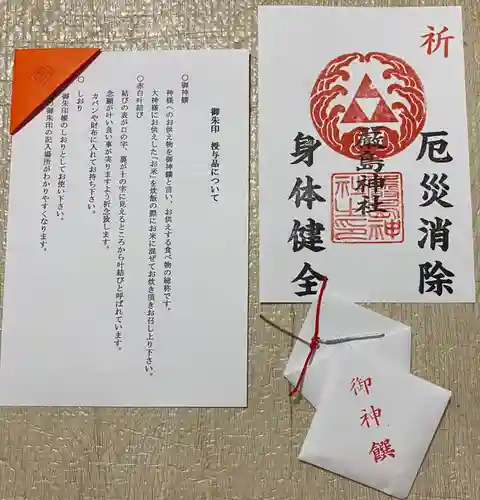 御朱印 授与品について
〇御神饌
神様へのお供え物を御神饌と言い、お供えする食べ物の総称です。
大神様にお供えした『お米』を炊飯の際にお米に混ぜてお炊き頂きお召し上り下さい。
〇赤白叶結び
結びの表が口の字、裏が十の字に見えるところから叶結びと呼ばれています。
念願が叶い良い事が実りますよう祈念致します。
カバンや財布に入れてお持ち下さい。
〇しおり
御朱印様のしおりとしてお使い下さい。
の御朱印の記入場所がわかりやすくなります。
祈
厄災消除
嚴島神社
身体健全
御神饌